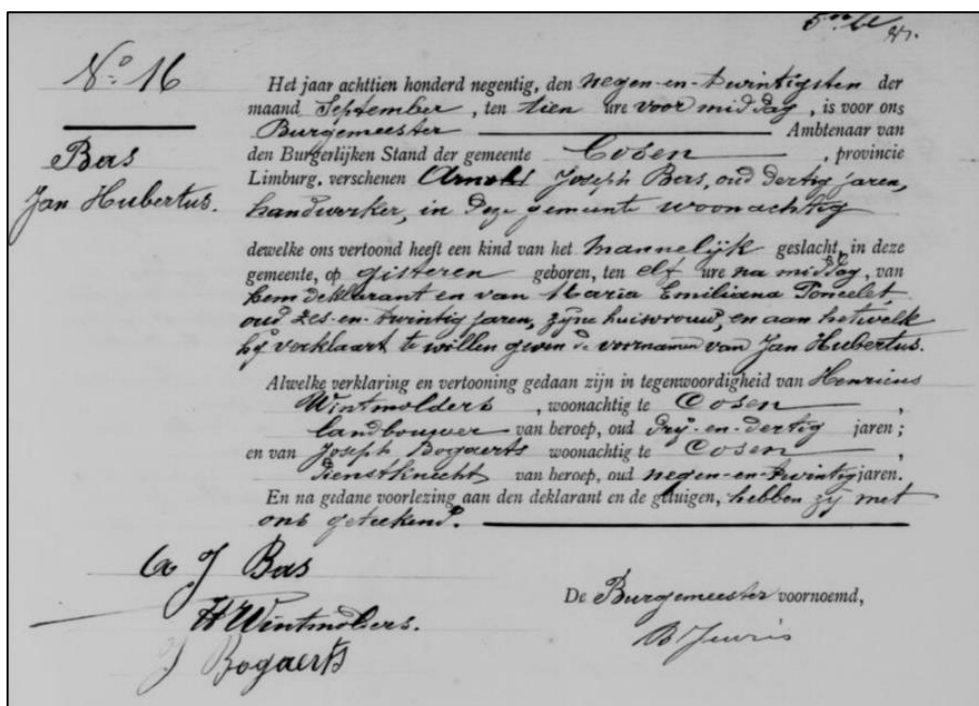 No 16
Bas
Jan Hubertus.
Het jaar achttien honderd negentig, den negen-en-twintigsten der
maand September, ten tien ure voor middag, is voor ons
Burgemeester Ambtenaar van
den Burgerlijken Stand der gemeente Cosen, provincie
Limburg, verschenen Arnold Joseph Bas, oud dertig jaren,
handwerker, in deze gemeente woonachtig
dewelke ons vertoond heeft een kind van het mannelijk geslacht, in deze
gemeente, op gisteren geboren, ten elf ure na middag, van
hem deklarant en van Maria Emiliana Poncelet,
oud zes-en-twintig jaren, zijne huisvrouw, en aan hetwelk
hij verklaart te willen geven de voornamen van Jan Hubertus.
Alwelke verklaring en vertooning gedaan zijn in tegenwoordigheid van Henricus
Wintmolders, woonachtig te Cosen,
landbouwer van beroep, oud drij-en-dertig jaren;
en van Joseph Bogaerts woonachtig te Cosen,
dienstknecht van beroep, oud negen-en-twintig jaren.
En na gedane voorlezing aan den deklarant en de getuigen, hebben zij met
ons geteekend.
A J Bas
H Wintmolders.
J Bogaerts
De Burgemeester voornoemd,